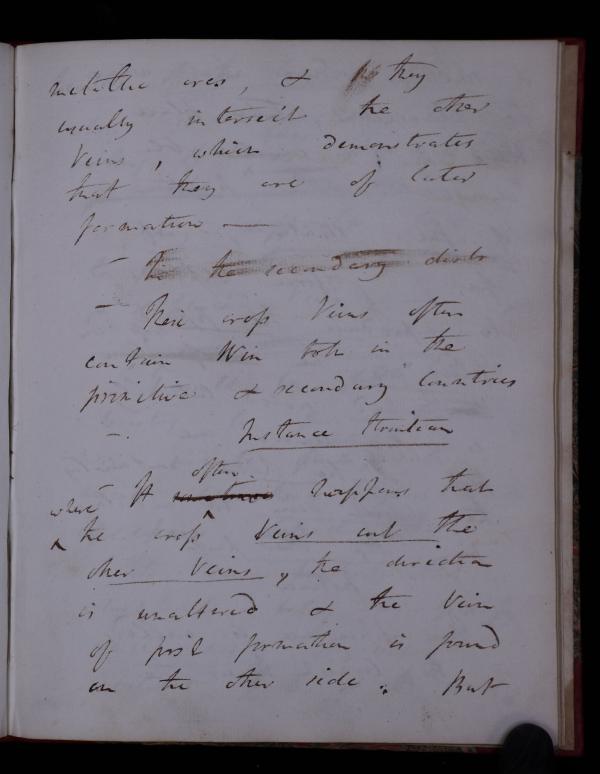 metallic ores, & they
usually intersect the other
Veins, which demonstrates
that they are of later
formation —
— In the secondary distr
— These cross Veins often
contain Iron both in the
primitive & secondary Countries
—. Instance
often
It sometimes happens that
where
the cross Veins cut the
other Veins, the direction
is unaltered & the Vein
of first formation is found
on the other side. But